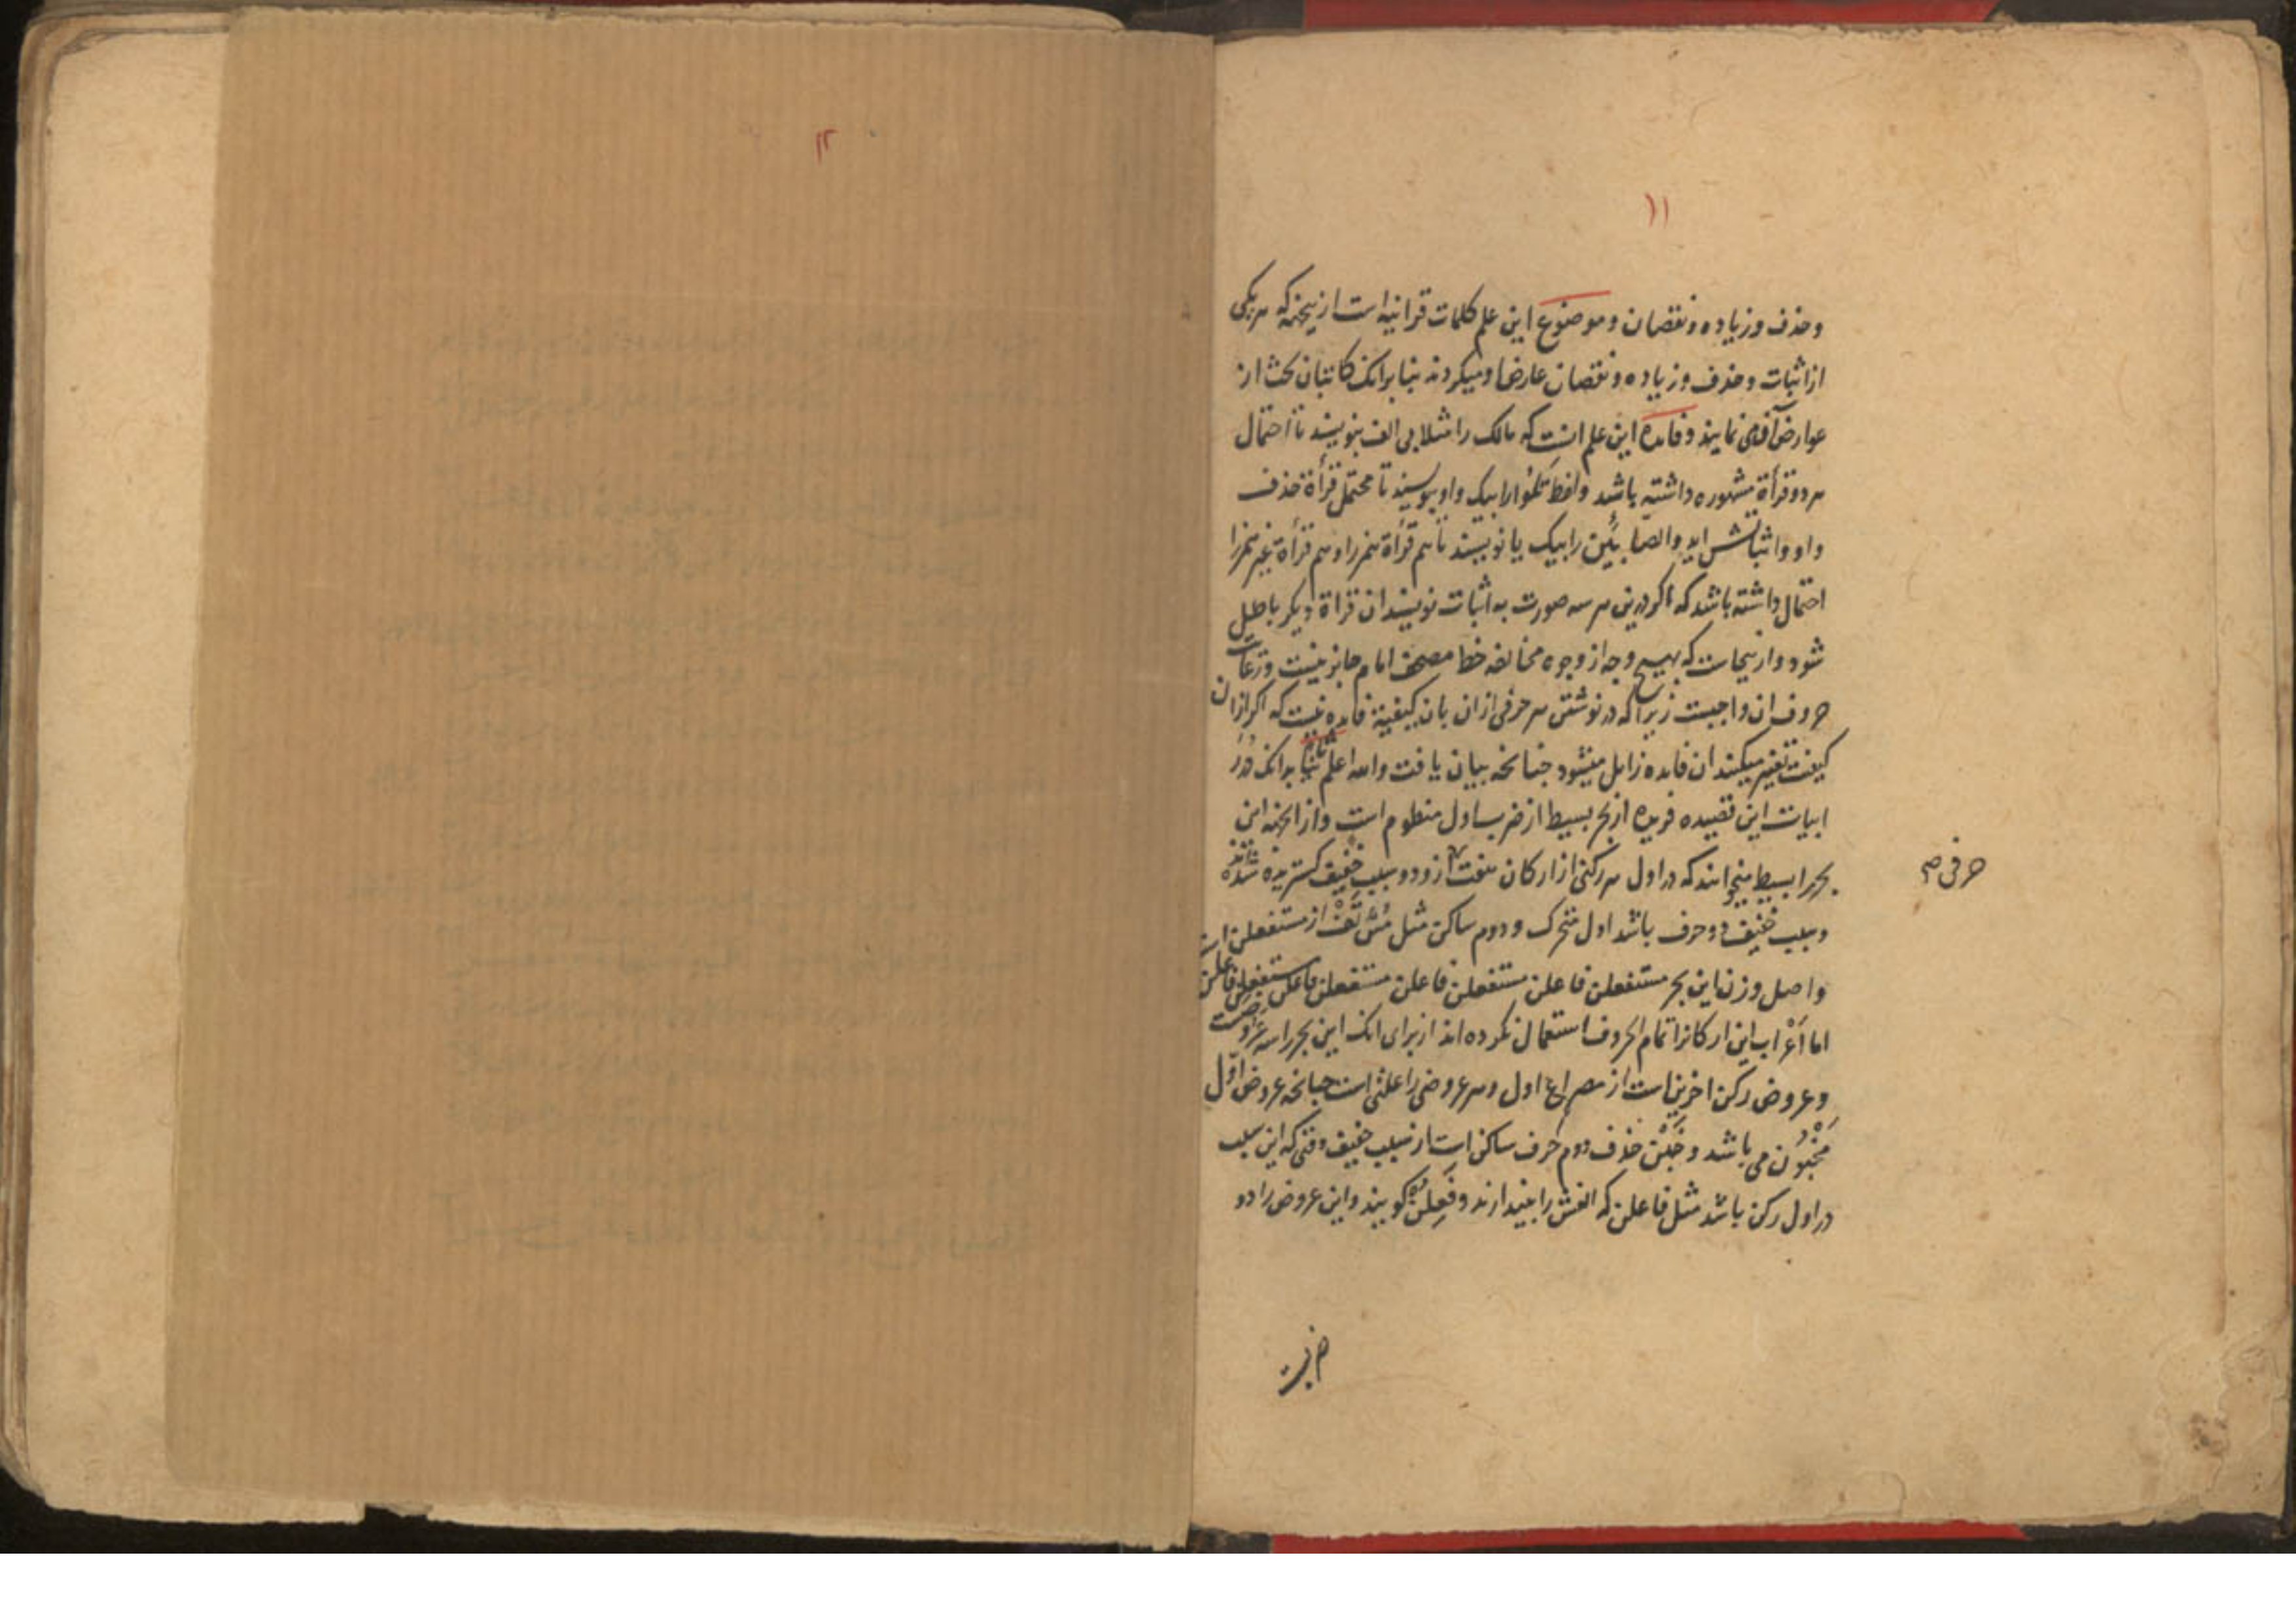 ۱۱
وحذف و زیاده و نقصان و موضوع این علم کلمات قرآنیه است ازینجهة که هر یکی
از اثبات وحذف و زیاده و نقصان عارض او میکردند بنا برانک کاتبان بحث از
عوارض آنها می نمایند و فایده این علم انست که مالک را مثلا بی الف بنویسند تا احتمال
هر دو قرأة مشهوره داشته باشد ولفظ تلوا را بیک واو بنویسند تا محتمل قرأة حذف
واو و اثباتش اید والصابئین را بیک یا نویسند تا هم قرأة همز را و هم قرأة غیر همز را
احتمال داشته باشد که اکر درین هر سه صورت به اثبات نویسند ان قراة دیکر باطل
شود و ازینجاست که بهیچ وجه از وجوه مخالفه خط مصحف امام جایز نیست و رعایت
حروف ان واجبست زیرا که در نوشتن هر حرفی ازان بان کیفیة فایده نیست که اکر ازان
کیفیت تغییر میکنند ان فایده زایل میشود چنانخه بیان یافت والله اعلم بدانک
ابیات این قصیده فریده از بحر بسیط از ضرب اول منظوم است و از انجهة این
بحر را بسیط میخوانند که در اول هر رکنی از ارکان هفت ازو دو سبب خفیف کستریده شده
و سبب خفیف دو حرف باشد اول متحرک و دوم ساکن مثل مس تف از مستفعلن است
واصل وزن این بحر مستفعلن فاعلن مستفعلن فاعلن مستفعلن فاعلن مستفعلن فاعلن
اما اعراب این ارکانرا تمام الحروف استعمال نکرده اند از برای انک این بحر را سه عروضست
و عروض رکن اخرین است از مصراع اول و هر عروضی را علتی است چنانخه عروض اوّل
مخبون می باشد و خبن حذف دوم حرف ساکن است از سبب خفیف وقتی که این سبب
در اول رکن باشد مثل فاعلن که الفش را بیندازند و فعلن کویند و این عروض را دو
ضربست
حرفی م
۱۲